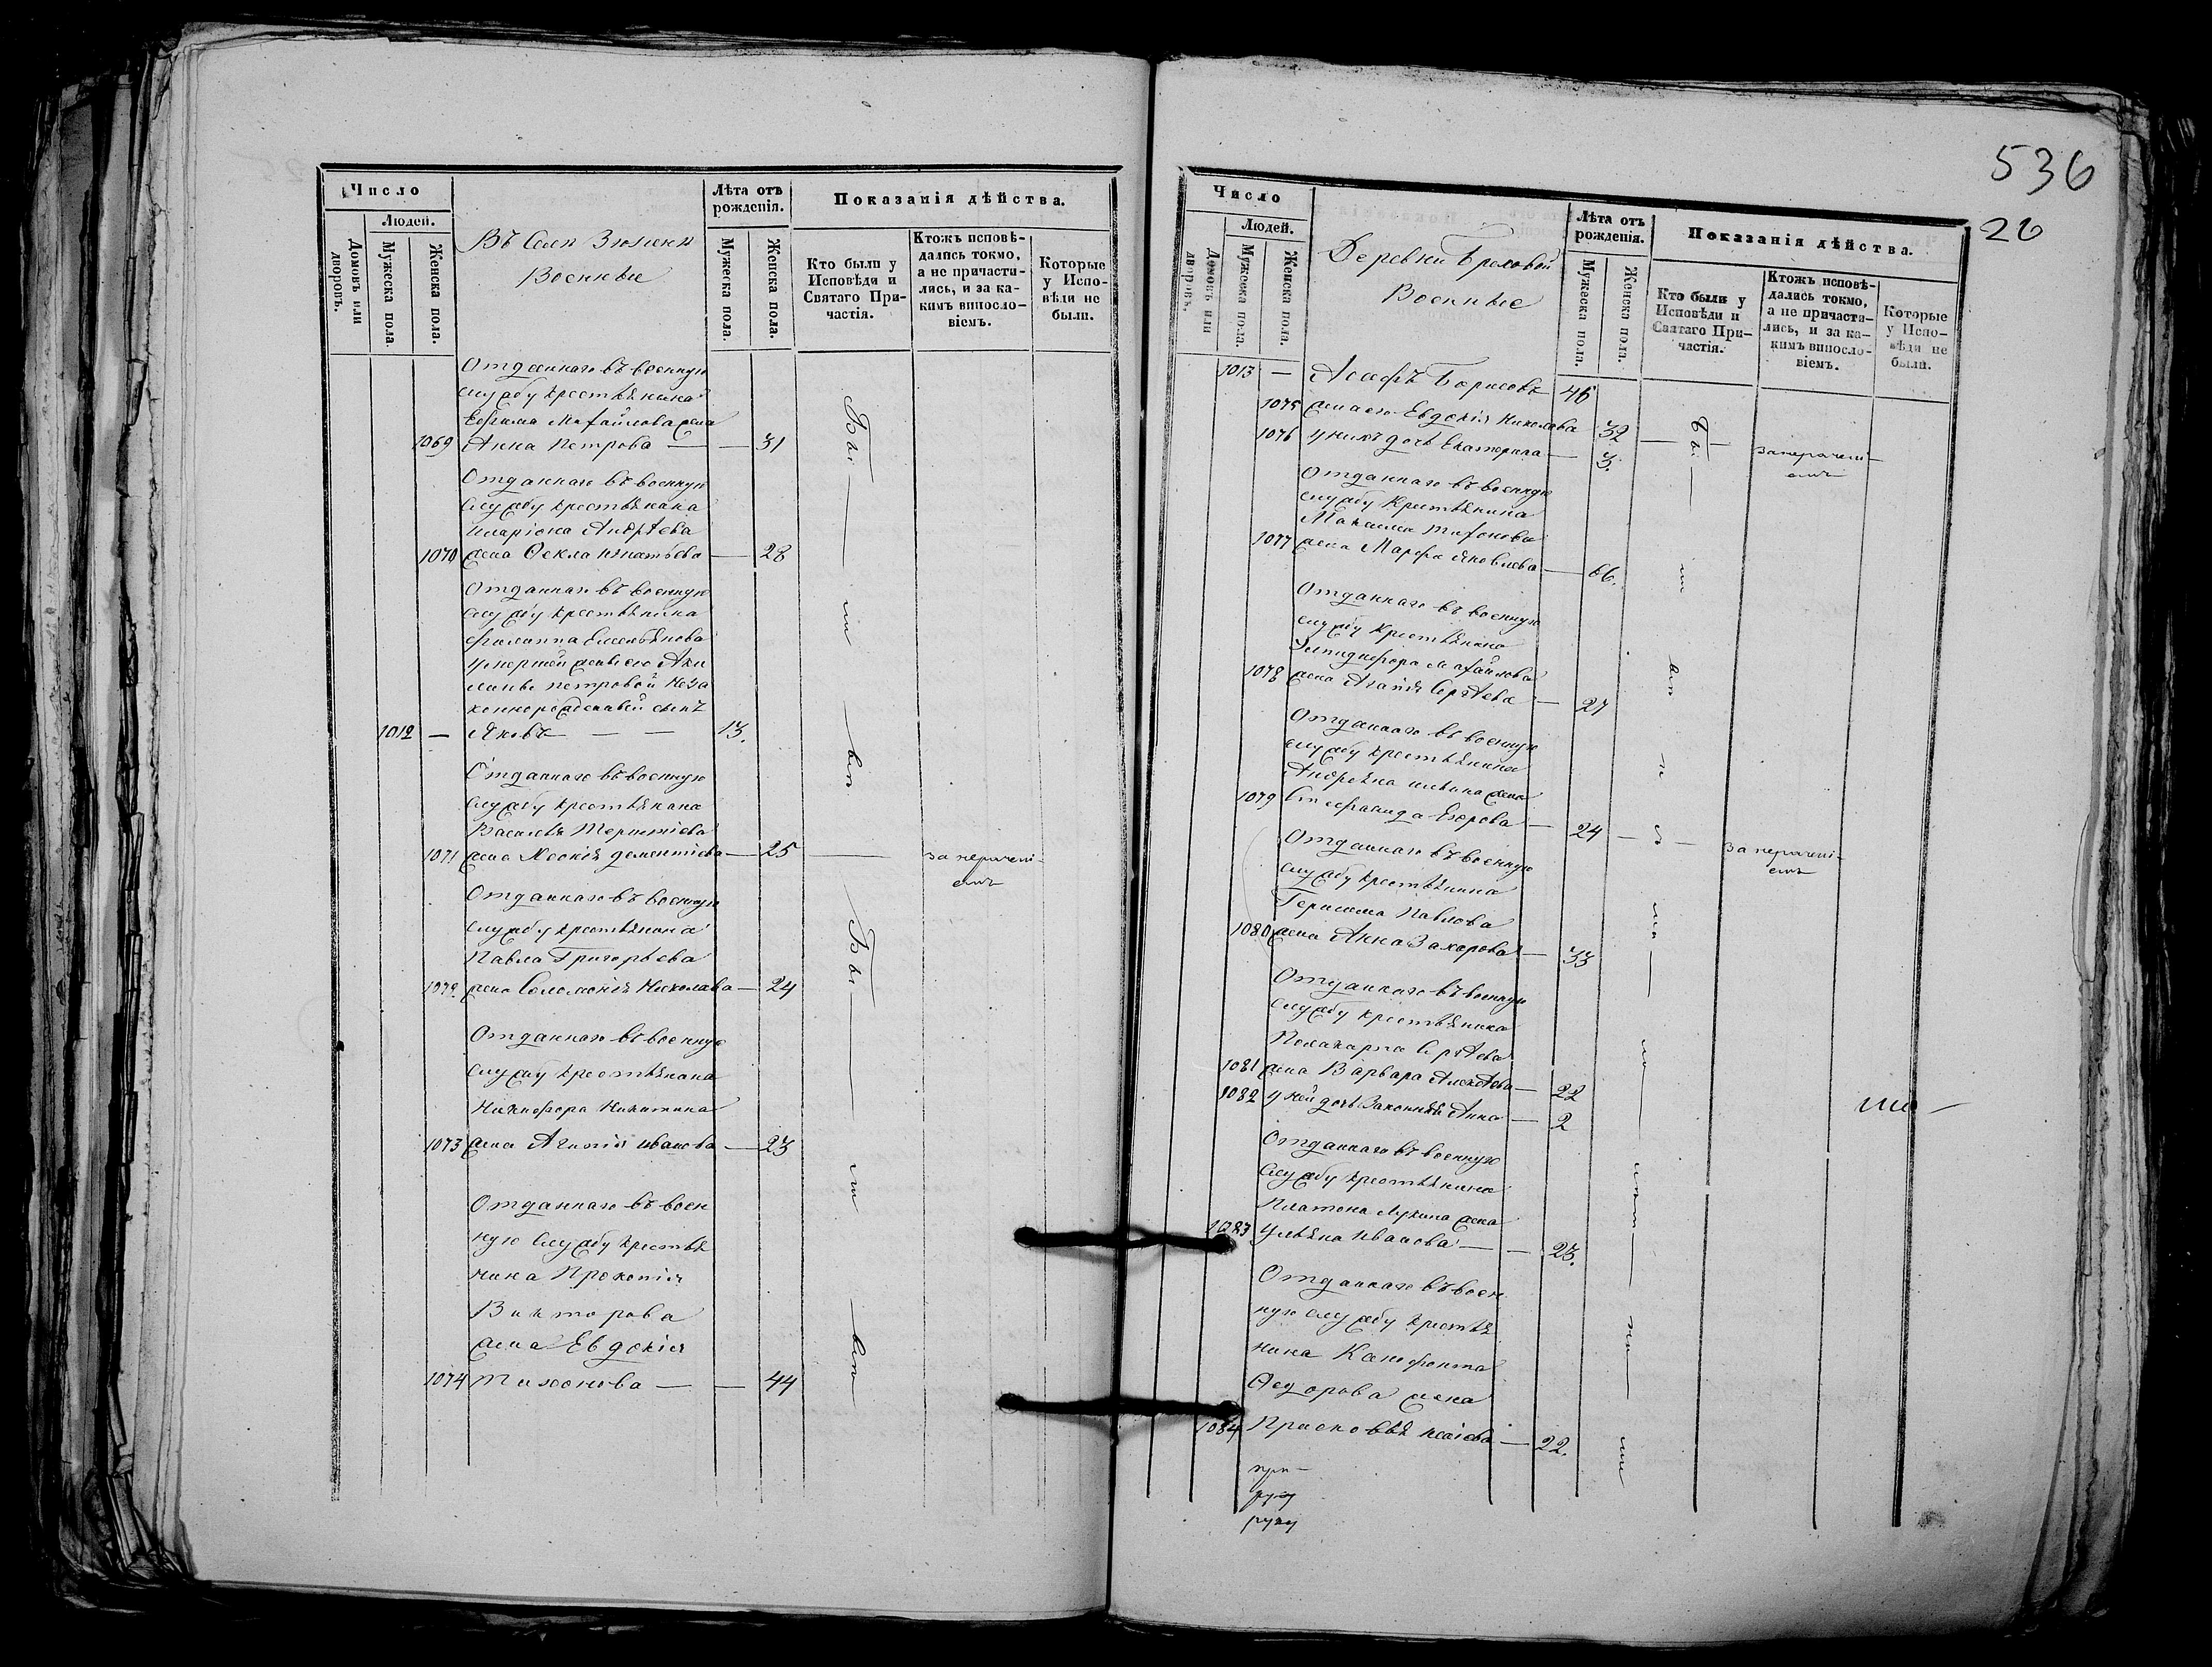 Число
Людей.
Домовъ или дворовъ.
Мужеска пола.
Женска пола.
Въ Селѣ
Военные
Лѣта отъ рожденія.
Мужеска пола.
Женска пола.
Показанія дѣйства.
Кто были у Исповѣди и Святаго Причастія.
Ктожъ исповѣдались токмо, а не причастились, и за какимъ винословіемъ.
Которые у Исповѣди не были.
Отданнаго въ военную
службу крестьянина
Ефима Михайлова жена
1069 Анна Петрова — — 31
Отданнаго въ военную
службу крестьянина
Иларіона Андрѣева
1070 жена Ѳекла Игнатьева — 28
Отданнаго въ военную
службу крестьянина
Филиппа Емельянова
умершей жены его Аки
лины Петровой неза
коннорожденный сынъ
1012 — Яковъ — — 13.
Отданнаго въ военную
службу крестьянина
Василья Терентіева
1071 жена Дементіева — 25 — за нерачені-
емъ
Отданнаго въ военную
службу крестьянина
Павла Григорьева
1072. жена Соломонія Николаева — 24
Отданнаго въ военную
службу крестьянина
Никифора Никитина
1073 жена Агапія Иванова — 23
Отданнаго въ воен
ную службу крестья
нина Прокопія
Викторова
жена Евдокія
1074 Тихонова — — 44
Бы — ли — вп
Бы — ли — вп
536
26
Число
Людей.
Домовъ или дворовъ.
Мужеска пола.
Женска пола.
Деревни
Военные
Лѣта отъ рожденія.
Мужеска пола.
Женска пола.
Показанія дѣйства.
Кто были у Исповѣди и Святаго Причастія.
Ктожъ исповѣдались токмо, а не причастились, и за какимъ винословіемъ.
Которые у Исповѣди не были.
1013 — Борисовъ 46
1075 жена его Евдокія Николаева 32
1076 у нихъ дочь Екатерина — 3. занерачені-
емъ
Отданнаго въ военную
службу крестьянина
Максима Тихонова
1077 жена Марфа Яковлева — 66.
Отданнаго въ военную
службу крестьянина
Елпидифора Михайлова
1078 жена Агапія Сергѣева — 27
Отданнаго въ военную
службу крестьянина
жена
1079 Стефанида Егорова — 24 — за нерачені-
емъ
Отданнаго въ военную
службу крестьянина
Герасима Павлова
1080 жена Анна Захарова — 33
Отданнаго въ военную
службу крестьянина
Поликарпа Сергѣева
1081 жена Варвара Алексѣева — 22
1082 у ней дочь Анна — 2
Отданнаго въ военную
службу крестьянина
Платона Лукина жена
1083 Ульяна Иванова — — 23.
Отданнаго въ воен
ную службу крестья
нина Ксенофонта
Ѳедорова жена
1084 Прасковья Исаіева — 22.
при-
руку